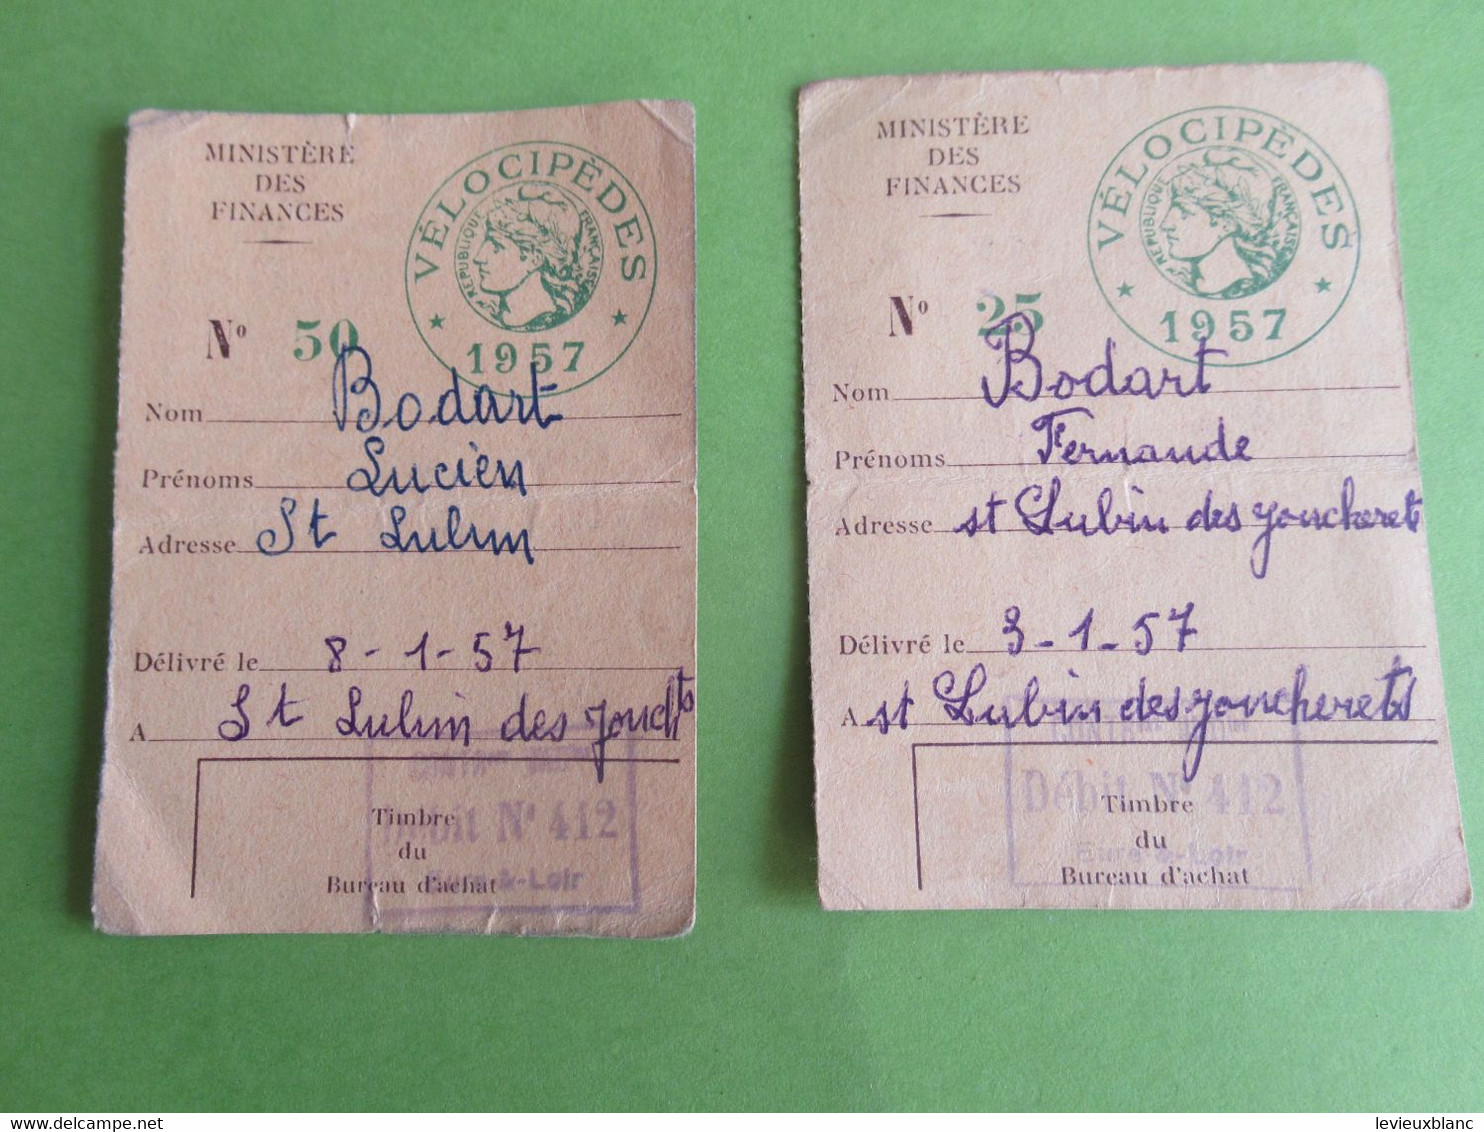 MINISTÈRE
DES
FINANCES
VÉLOCIPÈDES
RÉPUBLIQUE FRANÇAISE
★ 1957 ★
Nº 50
Nom Bodart
Prénoms Lucien
Adresse St Lubin
Délivré le 8-1-57
A St Lubin des Jouchts
Timbre
du
Bureau d'achat
Débit Nº 412
Eure-&-Loir
MINISTÈRE
DES
FINANCES
VÉLOCIPÈDES
RÉPUBLIQUE FRANÇAISE
★ 1957 ★
Nº 25
Nom Bodart
Prénoms Fernande
Adresse st Lubin des joncherets
Délivré le 3-1-57
A st Lubin des joncherets
Timbre
du
Bureau d'achat
Débit Nº 412
Eure-&-Loir
delcampe.net
levieuxblanc